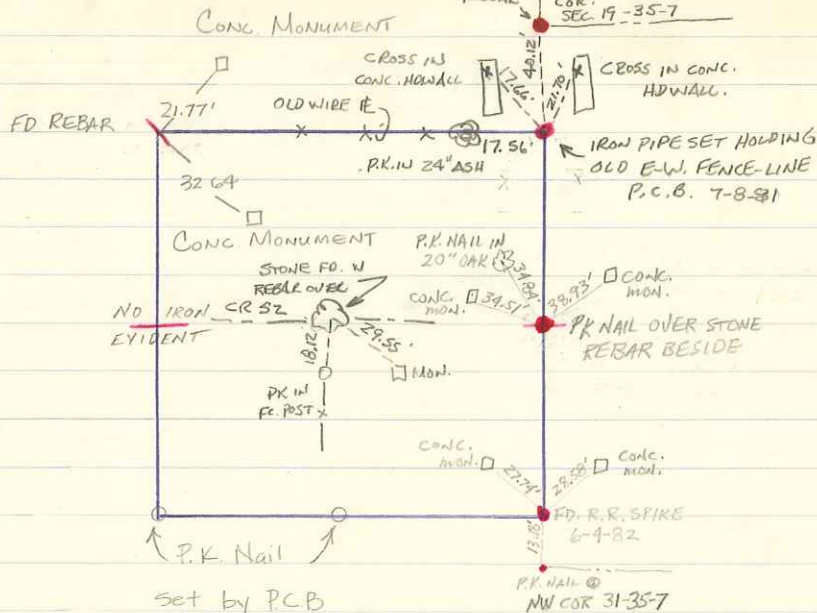 COR.
SEC. 19-35-7
CONC. MONUMENT
40.12'
CROSS IN
CONC. HDWALL
17.66'
21.70'
CROSS IN CONC.
HDWALL.
21.77'
OLD WIRE
FD REBAR
17.56'
P.K. IN 24" ASH
IRON PIPE SET HOLDING
OLD E-W. FENCE-LINE
P.C.B. 7-8-81
32.64
CONC. MONUMENT
P.K. NAIL IN
20" OAK
34.84'
STONE FD. W
REBAR OVER
CONC.
MON.
34.51'
38.93'
CONC.
MON.
NO IRON
EVIDENT
CR 52
PK NAIL OVER STONE
REBAR BESIDE
18.12
29.55'
MON.
PK IN
FC. POST
CONC.
MON.
27.74'
28.58'
CONC.
MON.
FD. R.R. SPIKE
6-4-82
P.K. Nail
set by P.C.B
P.K. NAIL @
NW COR 31-35-7